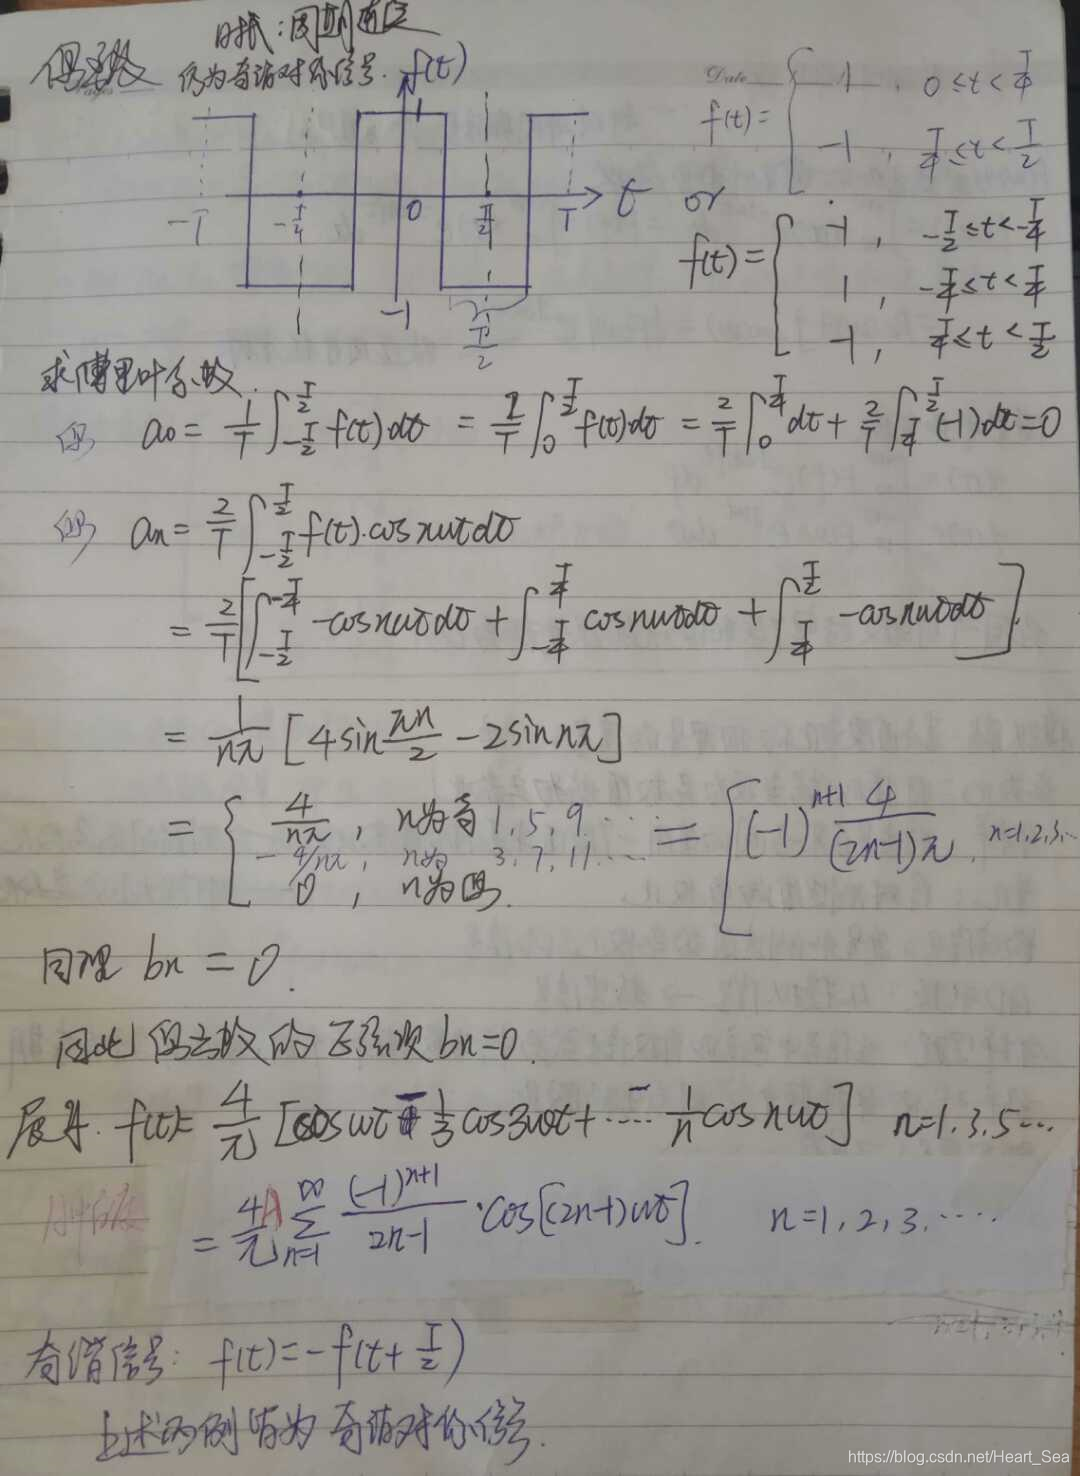 偶函数
仍为奇谐对称信号. f(t)
Date
f(t)= { 1 , 0≤t<T/4
-1 , T/4≤t<T/2
1
-T -T/2 0 T/2 T t
-1
T/2
or
f(t)= { -1 , -T/2≤t<-T/4
1 , -T/4≤t<T/4
-1 , T/4≤t<T/2
求傅里叶系数.
a0= 1/T ∫_{-T/2}^{T/2} f(t)dt = 2/T ∫_0^{T/2} f(t)dt = 2/T ∫_0^{T/4} dt + 2/T ∫_{T/4}^{T/2} (-1)dt=0
an= 2/T ∫_{-T/2}^{T/2} f(t).cosnωtdt
= 2/T [ ∫_{-T/2}^{-T/4} -cosnωtdt + ∫_{-T/4}^{T/4} cosnωtdt + ∫_{T/4}^{T/2} -cosnωtdt ].
= 1/nπ [4sin πn/2 - 2sin nπ]
= { 4/nπ , n为奇 1,5,9 ····· = [ (-1)^{n+1} 4/(2n-1)π , n=1,2,3,··
- 4/nπ , n为 3,7,11····
0 , n为偶.
同理 bn = 0.
因此 偶函数的正弦项 bn=0.
展开. f(t)= 4/π [cosωt - 1/3 cos3ωt+ ···· 1/n cosnωt] n=1,3,5···
= 4A/π ∑_{n=1}^{∞} (-1)^{n+1}/2n-1 ·cos[(2n-1)ωt]. n=1,2,3,····
奇谐信号: f(t)=-f(t+ T/2)
上述两例皆为奇谐对称信号.
https://blog.csdn.net/Heart_Sea